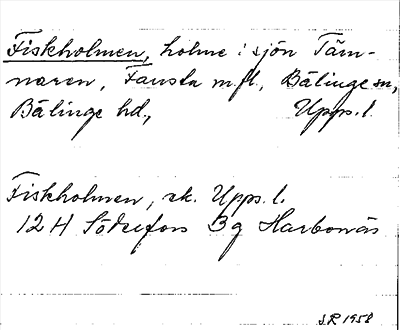 Fiskholmen, holme i sjön Täm-
naren, Fansta m.fl., Bälinge sn,
Bälinge hd, Upps. l.
Fiskholmen, ek. Upps. l.
12 H Söderfors 3 g Harbonäs
S.R 1958